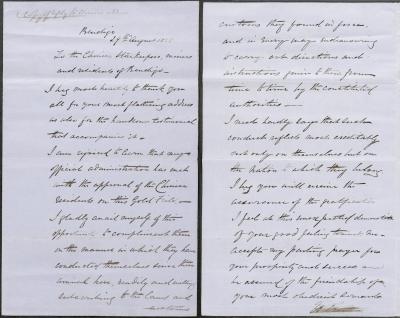 Bendigo
29th August
To the Chinese Storekeepers, miners
and residents of Bendigo.
I beg most heartily to thank you
all for your most flattering address
as also for the handsome testimonial
that accompanies it.
I am rejoiced to learn that my
official administration has met
with the approval of the Chinese
residents on this Gold Field.
I gladly avail myself of this
opportunity to compliment them
on the manner in which they have
conducted themselves since their
arrival here, readily and
subscribing to the laws and
customs
customs they found in force
and in every way endeavouring
to carry out directions and
instructions given to them from
time to time by the constituted
authorities
I need hardly say that such
conduct reflects most creditably
not only on themselves but on
the nation to which they belong
I beg you will receive the
assurances of the gratification
I feel at this most public demonstration
of your good feeling toward me
accept my parting prayer for
your prosperity and success and
be assured of the friendship of
your most obedient servant